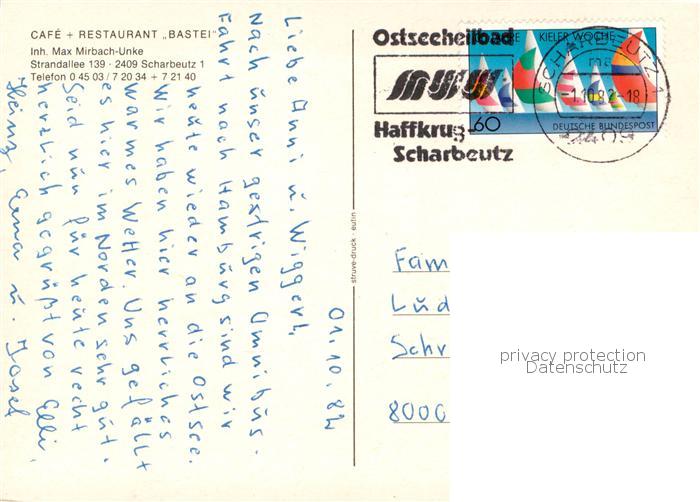 CAFÉ + RESTAURANT „BASTEI"
Inh. Max Mirbach-Unke
Strandallee 139 · 2409 Scharbeutz 1
Telefon 0 45 03 / 7 20 34 + 7 21 40
01.10.82
Liebe Anni u. Wiggerl,
Nach unser gestrigen Omnibus-
fahrt nach Hamburg sind wir
heute wieder an die Ostsee.
Wir haben hier herrliches
warmes Wetter. Uns gefällt
es hier im Norden sehr gut.
Seid nun für heute recht
herzlich gegrüßt von Elli,
Heinz, Erna u. Josef
struve-druck · eutin
Ostseeheilbad
Haffkrug-
Scharbeutz
KIELER WOCHE
60
DEUTSCHE BUNDESPOST
SCHARBEUTZ 1
-1.10.82-18
2409
Fam
Lud
Schr
8000
privacy protection
Datenschutz